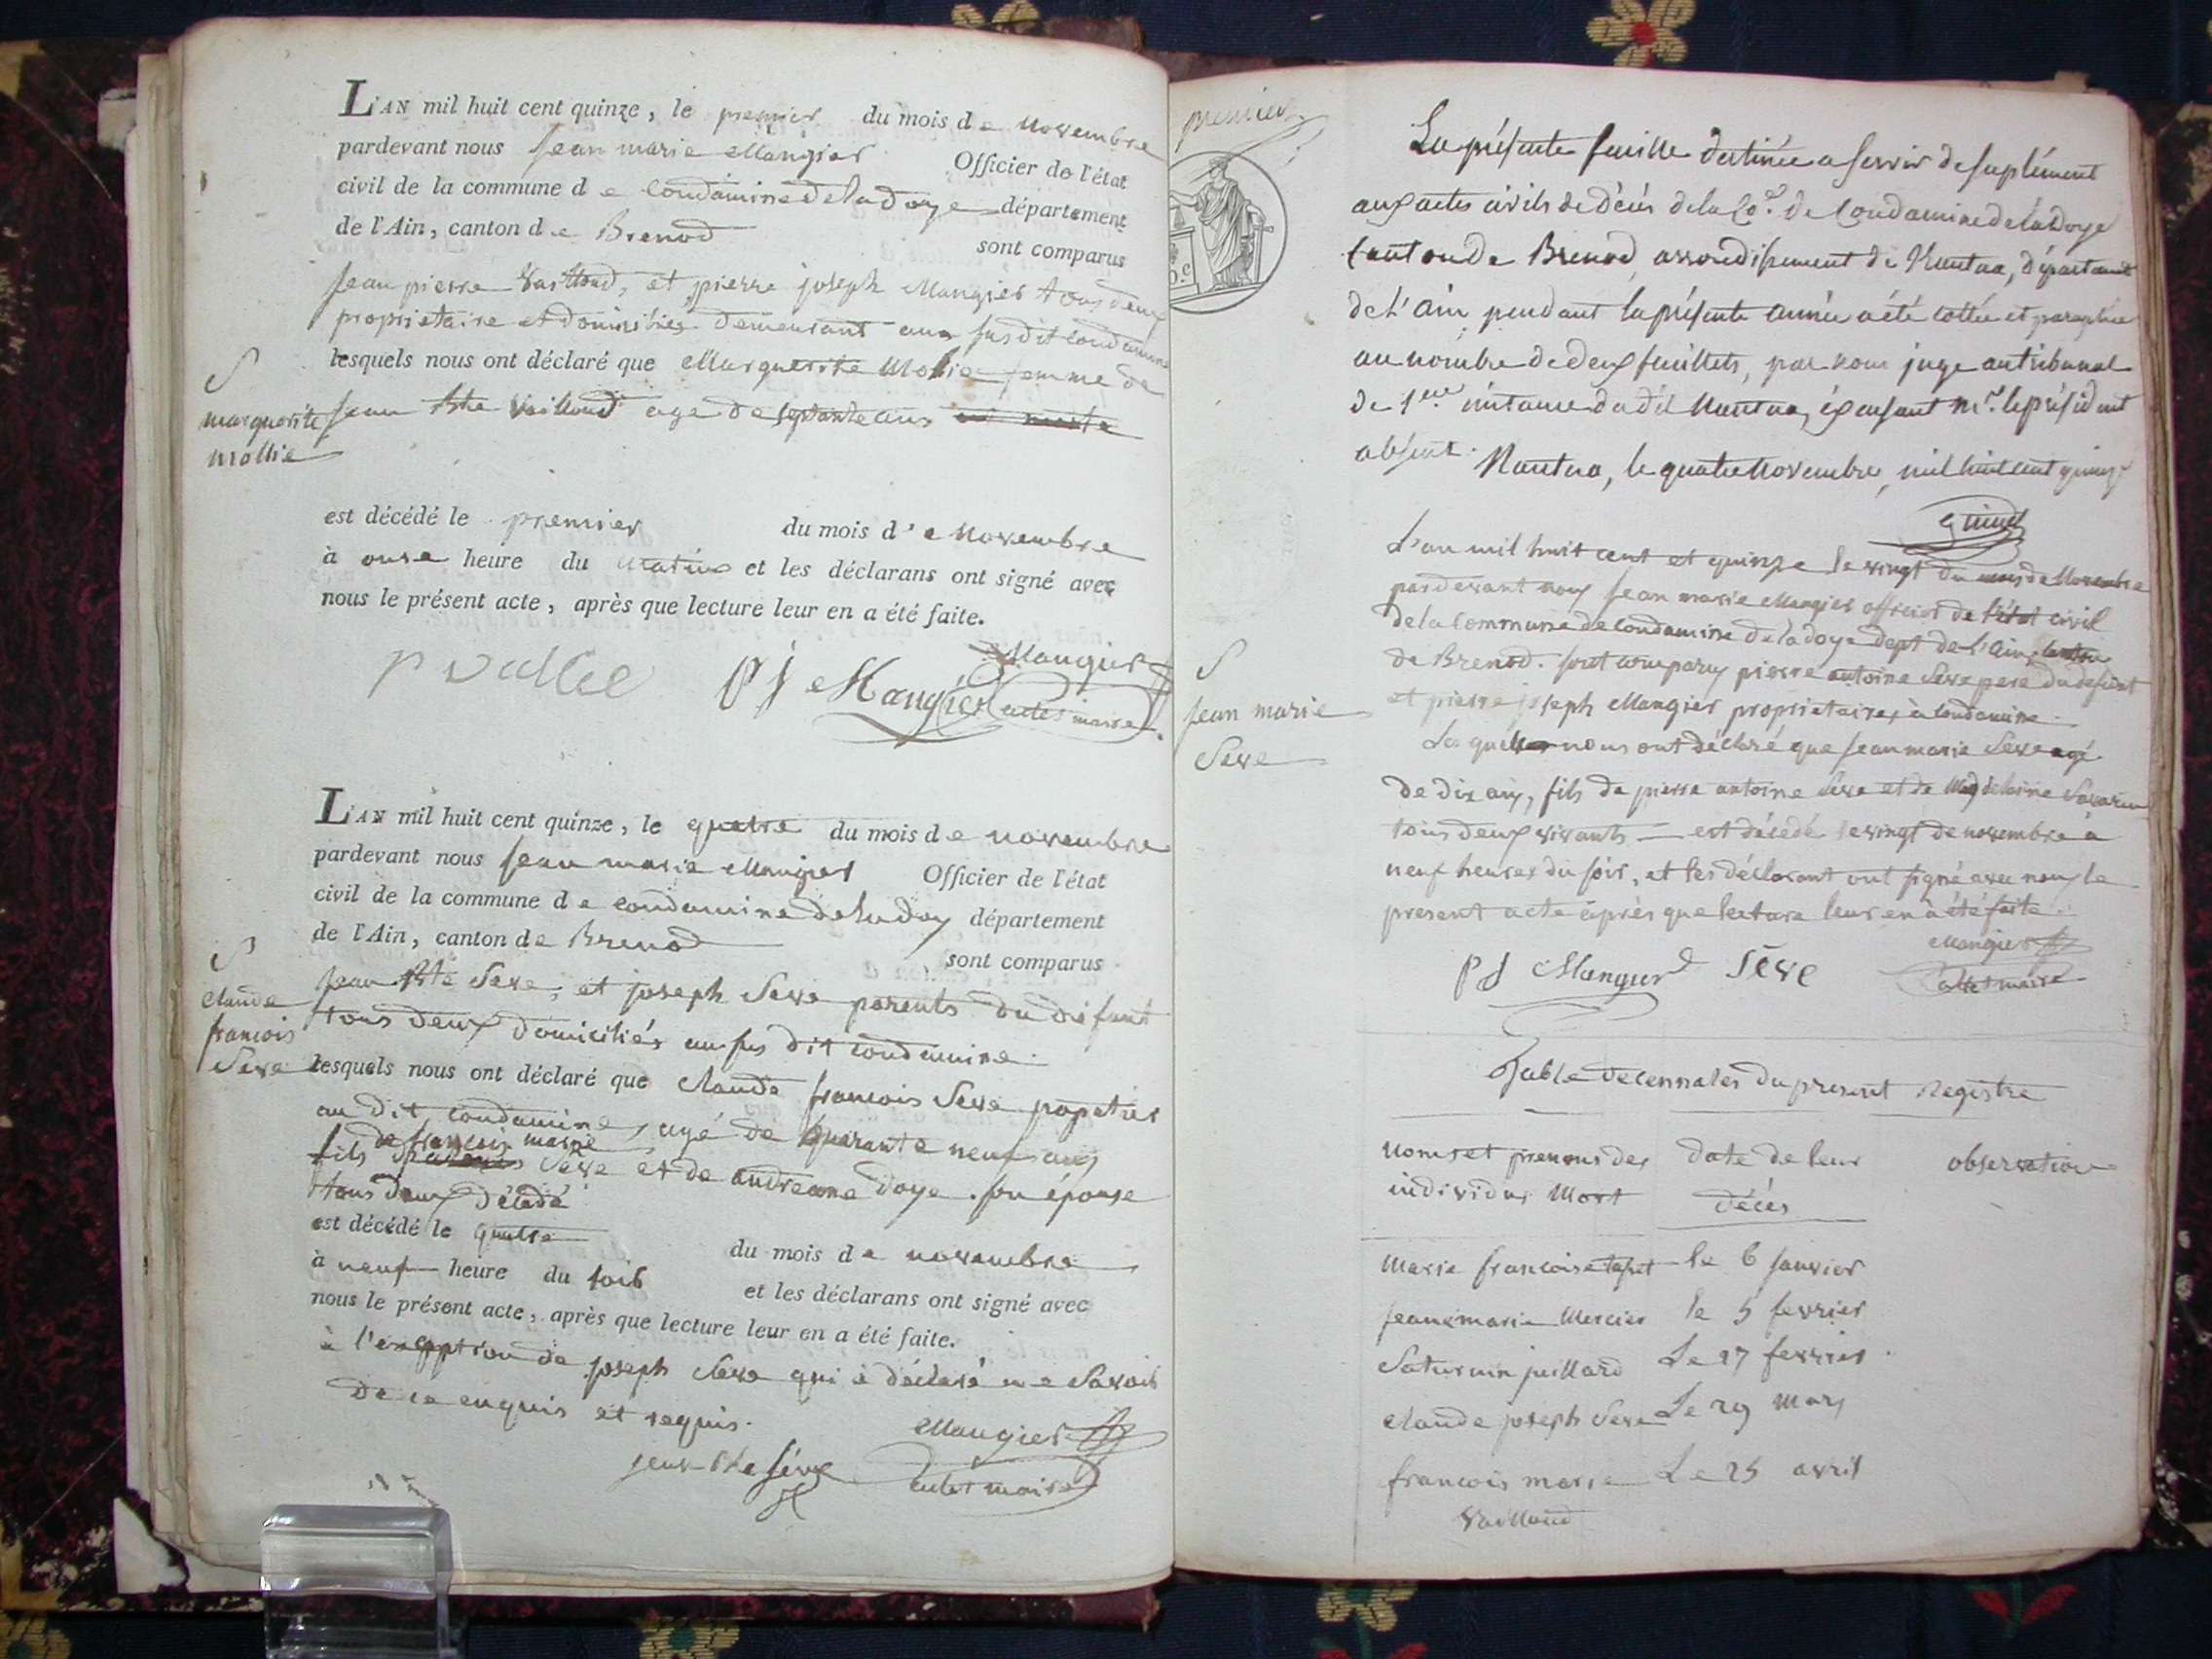 L'AN mil huit cent quinze, le premier du mois de Novembre
pardevant nous jean marie Mangier Officier de l'état
civil de la commune de Condamine de la doye département
de l'Ain, canton de Brenod
sont comparus
jean pierre Vailloud, et pierre joseph Mangier tous deux
propriétaire et domiciliés demeurant au susdit Condamine
lesquels nous ont déclaré que Marguerite Mollie femme de
marguerite jean Bte Vailloud age de septante ans est morte
mollie
est décédé le premier du mois d'e Novembre
à onse heure du matin et les déclarans ont signé avec
nous le présent acte, après que lecture leur en a été faite.
Mangier
PJ Mangier adet maire
L'AN mil huit cent quinze, le quatre du mois de novembre
pardevant nous jean marie Mangier Officier de l'état
civil de la commune de condamine de la doy département
de l'Ain, canton de Brenod
sont comparus
jean Bte Seve, et joseph Seve parents du défunt
claude
tous deux domiciliés au sus dit condamine
francois
Seve
lesquels nous ont déclaré que claude francois Seve papetier
au dit condamine, agé de quarante neuf ans
de francois marie
fils Seve et de andreane doye son épouse
tous deux décédé
est décédé le quatre du mois de novembre
à neuf heure du soir et les déclarans ont signé avec
nous le présent acte, après que lecture leur en a été faite.
à l'exception de joseph Seve qui à déclaré ne savoir
de ce enquis et requis.
Mangier
jean Bte Séve adet maire
premier
La présente feuille destinée a servir de suplément
aux actes civils de décès de la Co.e de Condamine de la Doye
Canton de Brenod, arrondissement de Nantua, département
de l'Ain pendant la présente année a été cottée et paraphée
au nombre de deux feuillets, par nous juge au tribunal
de 1ere instance du dit Nantua, excusant Mr. le président
absent.
Nantua, le quatre Novembre, mil huit cent quinze
L'an mil huit cent et quinze le vingt du mois de Novembre
pardevant nous jean marie Mangier officier de l'état civil
de la Commune de Condamine de la doye dept de l'ain, canton
de Brenod. sont comparus pierre antoine Seve pere du defunt
et pierre joseph Mangier propriétaires à Condamine
jean marie
Seve
Lesquels nous ont déclaré que jean marie Seve agé
de dix ans, fils de pierre antoine Seve et de Magdelaine Savarin
tous deux vivants est décédé le vingt de novembre à
neuf heures du soir, et les déclarant ont signé avec nous le
present acte après que lecture leur en à été faite.
Mangier
PJ Mangier Séve adet maire
Table decennales du present Registre
noms et prenoms des date de leur observation
individus Mort décès
Marie francoise tapet le 6 janvier
jeanemarie Mercier le 5 fevrier
Saturnin juillard Le 27 fevrier
claude joseph Seve Le 29 Mars
francois marie Le 25 avril
Vailloud